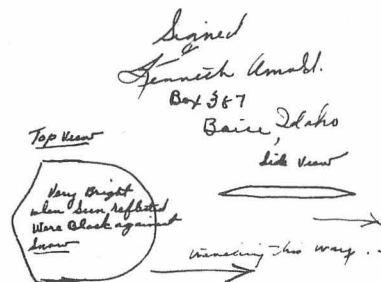 Signed
Kenneth Arnold.
Box 387
Boise, Idaho
Top View
Side View
Very Bright
when Sun reflected
Were Black against
Snow
traveling this way